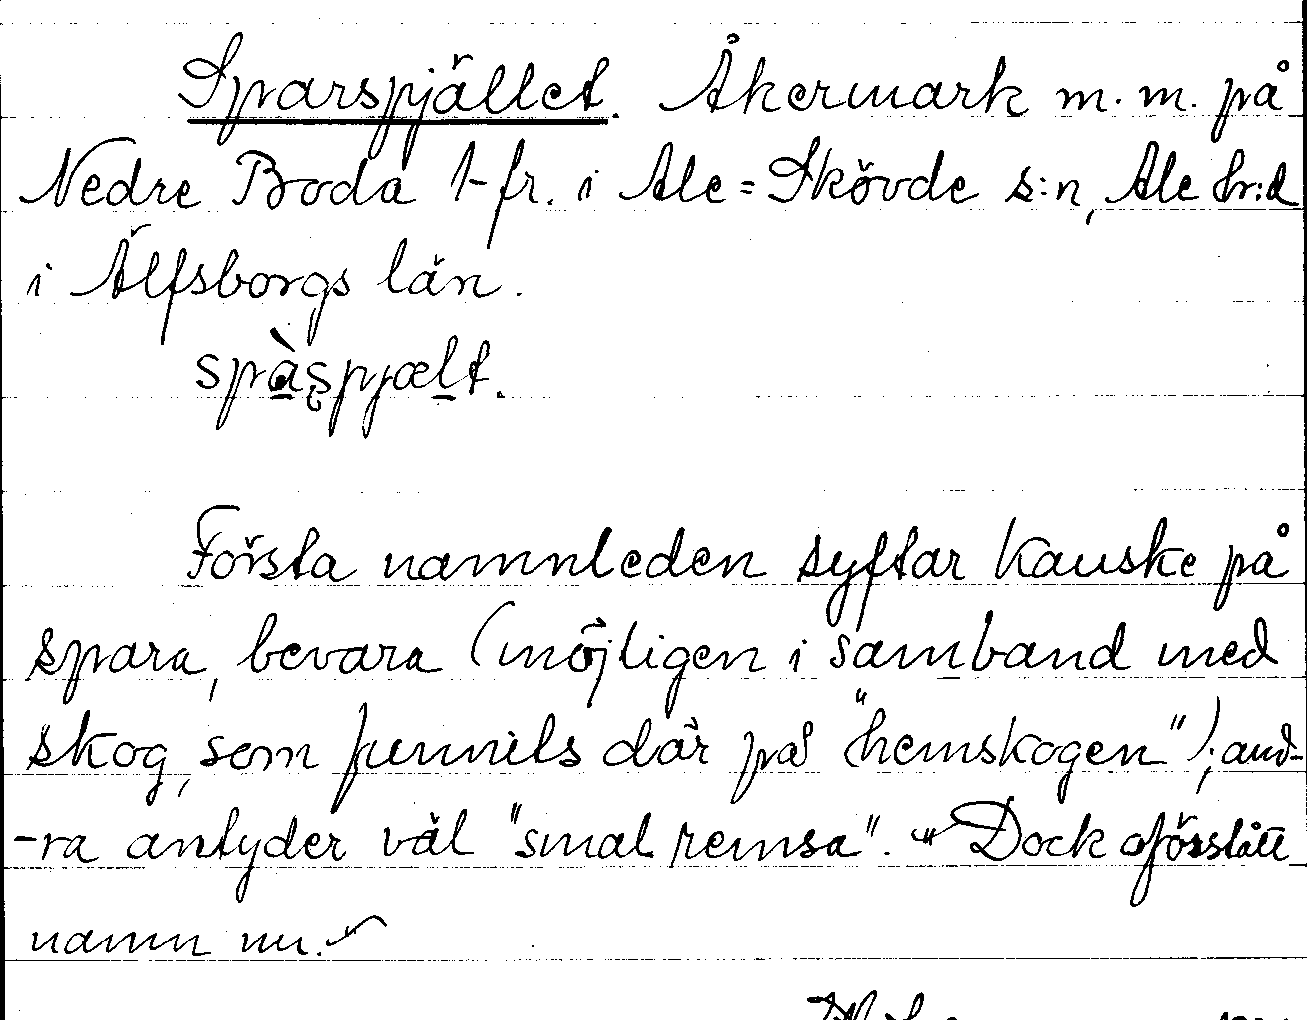 Sparspjället. Åkermark m.m. på
Nedre Boda 1-fr. i Ale=Skövde s:n, Ale hr:d
i Älfsborgs län.
spàs̨pjælt.
Första namnleden syftar kanske på
spara, bevara (möjligen i samband med
skog, som funnits där på "hemskogen"); and-
-ra antyder väl "smal remsa". "Dock oförstått
namn nu."